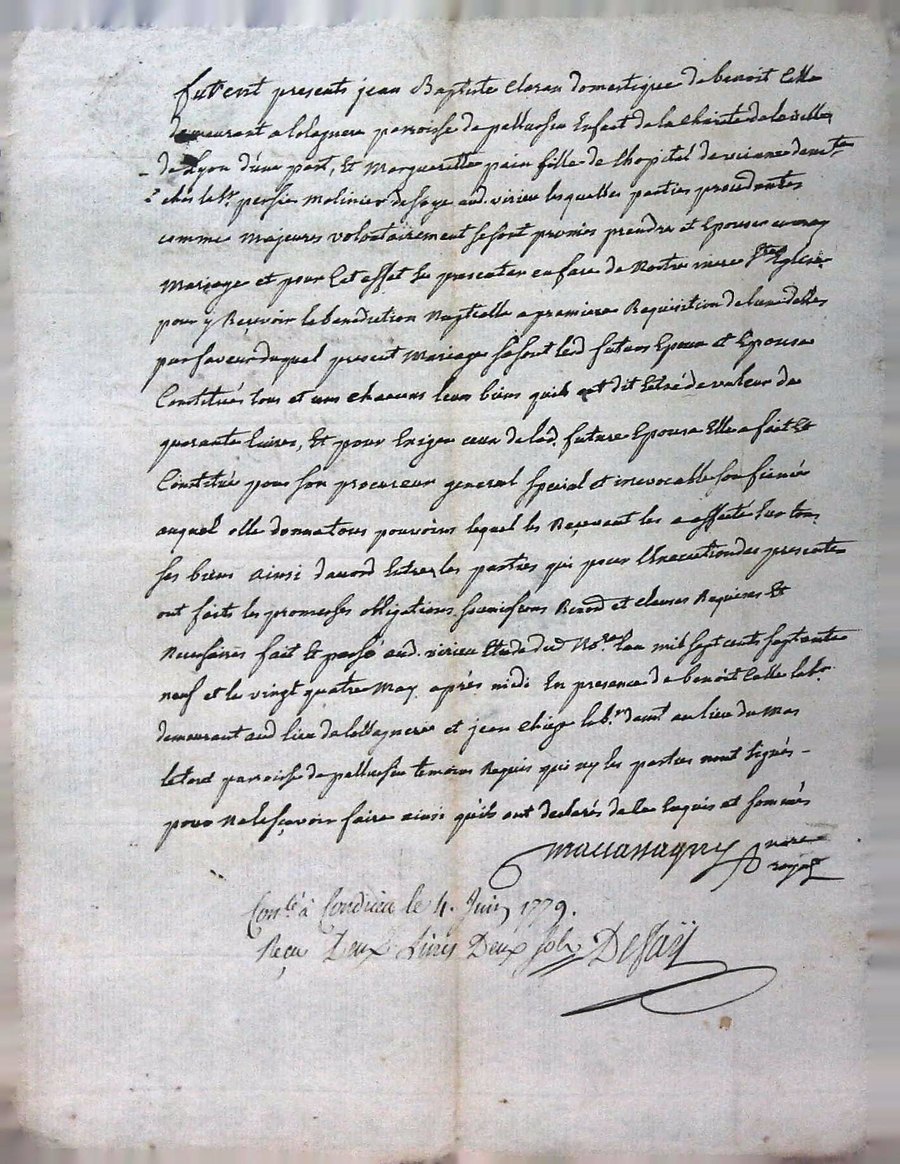 furent presents jean Baptiste Claran domestique de benoit Celle
demeurant a lolagnera parroisse de pellussin Enfant de la Charité de la ville
de Lyon d'une part, Et Marguerette pain fille de l'hopital de vienne demte
chés le Sr. persie Molinier de soye aud. virieu lesquelles parties procedantes
comme majeures volontairement se sont promis prendre et Epouser en vray
Mariage et pour Cet effet se presenter en face de Nostre mere Ste Eglise
pour y Recevoir la benediction Nuptialle a premiere Requisition de l'une delles
par faveur duquel present Mariage se sont lesd futurs Epoux et Epouse
Constitués tous et uns chacuns leurs biens quils ont dit Estre de valeur de
quarante livres, Et pour Exiger ceux de lad. future Epouse Elle a fait Et
Constitué pour son procureur general special et irrevocable son fiancé
auquel elle donne tous pouvoirs lequel les Recevant les a affecté sur tous
ses biens ainsi d'acord Entre les parties qui pour l'Execution des presentes
ont faits les promesses obligations soumissions Renon et clauses Requises Et
Necessaires fait Et passé aud. virieu Etude dud Nre. l'an mil sept cents septante
neuf et le vingt quatre May après midi En presence de benoit Celle labr.
demeurant aud lieu de et jean labr. demt au lieu du Mas
parroisse de pellussin temoins Requis qui ny les parties n'ont signés -
pour Ne le sçavoir faire ainsi qu'ils ont declarés de ce Enquis et sommés
Maccassagny nore
royal
Conlé à Condrieu le 4. Juin 1779.
Reçu Deux Livres Deux sols Defaÿ